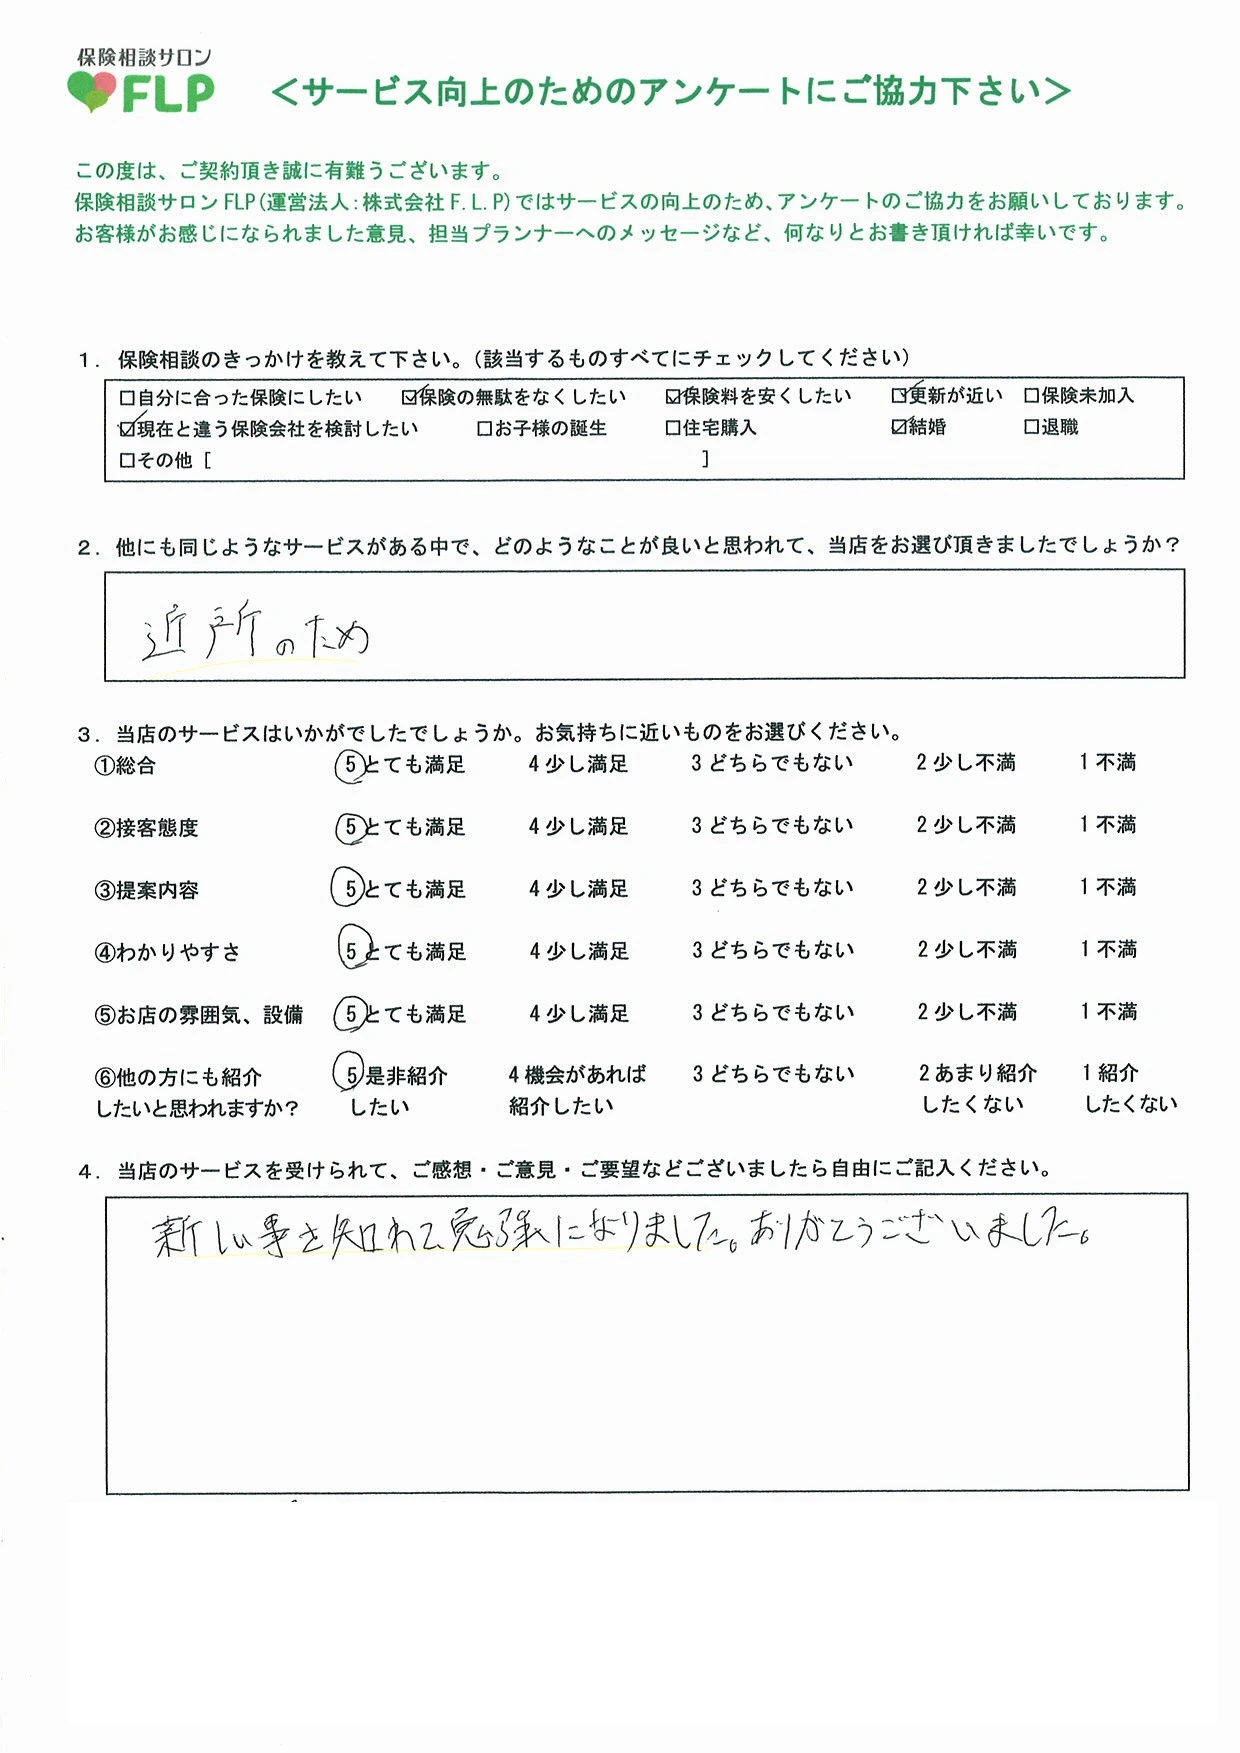 保険相談サロン
FLP
＜サービス向上のためのアンケートにご協力下さい＞
この度は、ご契約頂き誠に有難うございます。
保険相談サロンFLP(運営法人:株式会社F.L.P)ではサービスの向上のため、アンケートのご協力をお願いしております。
お客様がお感じになられました意見、担当プランナーへのメッセージなど、何なりとお書き頂ければ幸いです。
1. 保険相談のきっかけを教えて下さい。(該当するものすべてにチェックしてください)
□自分に合った保険にしたい ☑保険の無駄をなくしたい ☑保険料を安くしたい ☑更新が近い □保険未加入
☑現在と違う保険会社を検討したい □お子様の誕生 □住宅購入 ☑結婚 □退職
□その他 [ ]
2. 他にも同じようなサービスがある中で、どのようなことが良いと思われて、当店をお選び頂きましたでしょうか?
近所のため
3. 当店のサービスはいかがでしたでしょうか。お気持ちに近いものをお選びください。
①総合 5とても満足 4少し満足 3どちらでもない 2少し不満 1不満
②接客態度 5とても満足 4少し満足 3どちらでもない 2少し不満 1不満
③提案内容 5とても満足 4少し満足 3どちらでもない 2少し不満 1不満
④わかりやすさ 5とても満足 4少し満足 3どちらでもない 2少し不満 1不満
⑤お店の雰囲気、設備 5とても満足 4少し満足 3どちらでもない 2少し不満 1不満
⑥他の方にも紹介 5是非紹介 4機会があれば 3どちらでもない 2あまり紹介 1紹介
したいと思われますか? したい 紹介したい したくない したくない
4. 当店のサービスを受けられて、ご感想・ご意見・ご要望などございましたら自由にご記入ください。
新しい事を知れて勉強になりました。ありがとうございました。